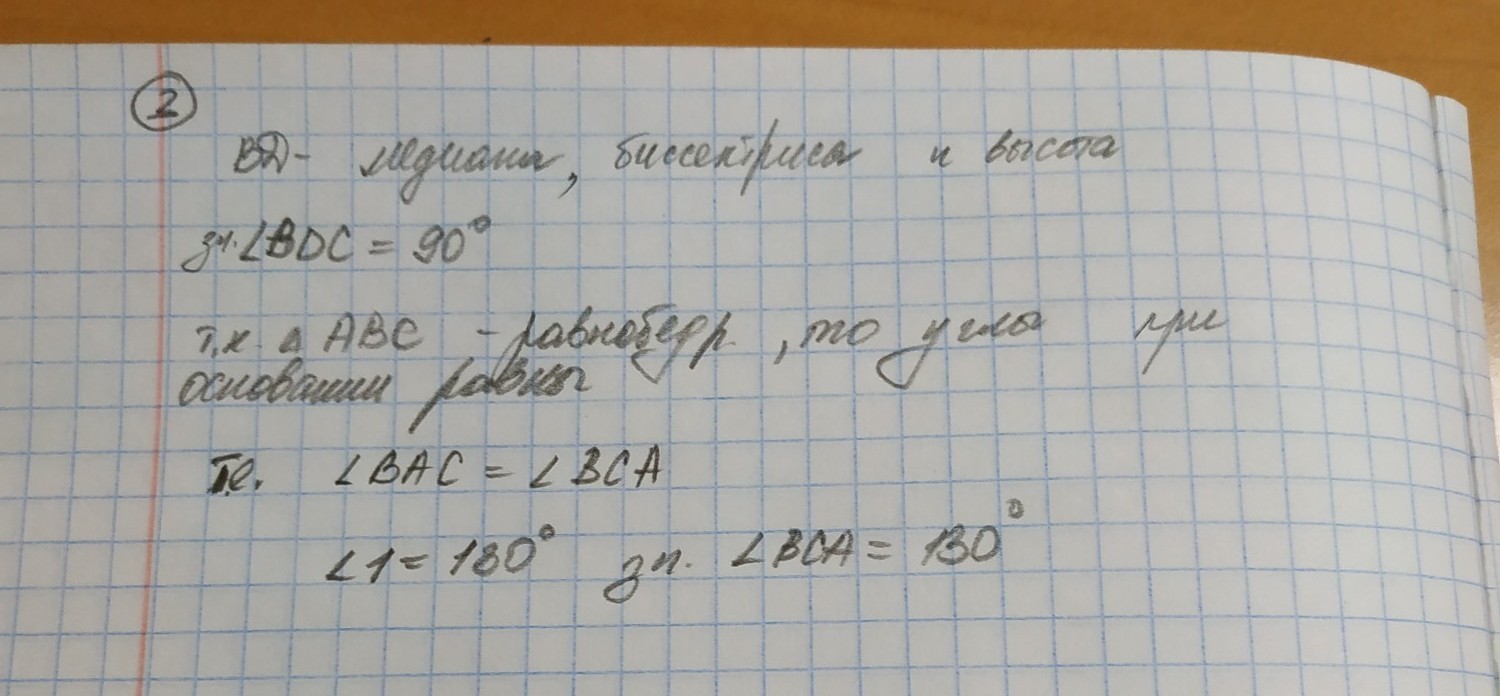 2
BD - медиана, биссектриса и высота
зн. ∠BDC = 90°
т.к. △ ABC - равнобедр., то углы при
основании равны
т.е. ∠BAC = ∠BCA
∠1 = 130° зн. ∠BCA = 130°